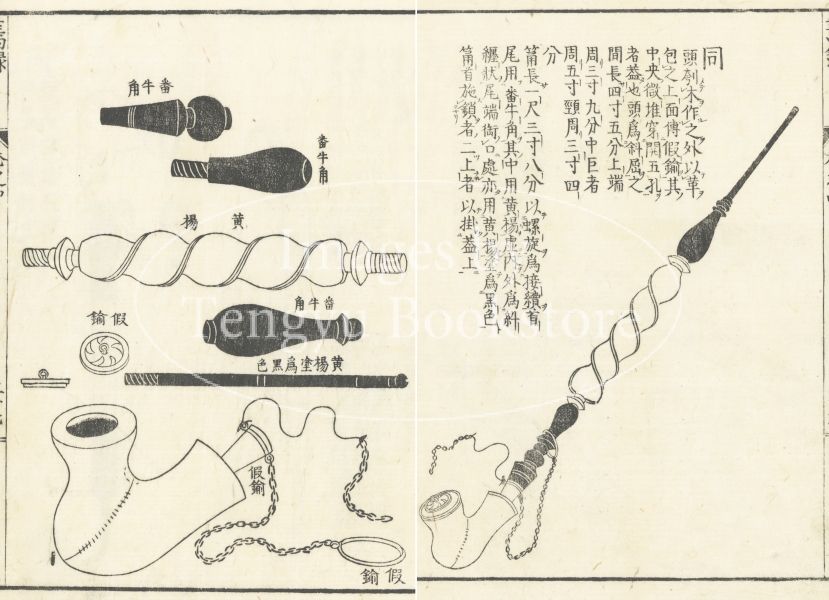 同
頭刳木作之外以革
包之上面傅假鍮其
中央微堆穿開五孔
者蓋也頭爲斜屈之
間長四寸五分上端
周三寸九分中巨者
周五寸頸周三寸四
分
筩長一尺三寸八分以螺旋爲接續首
尾用番牛角其中用黄楊處外爲斜
纏狀尾端銜口處亦用黄楊塗爲黒色
筩首施鎖者二上者以掛蓋上
番牛角
番牛角
黄楊
番牛角
假鍮
黄楊塗爲黒色
假鍮
假鍮
Images by
Tengyu Bookstore